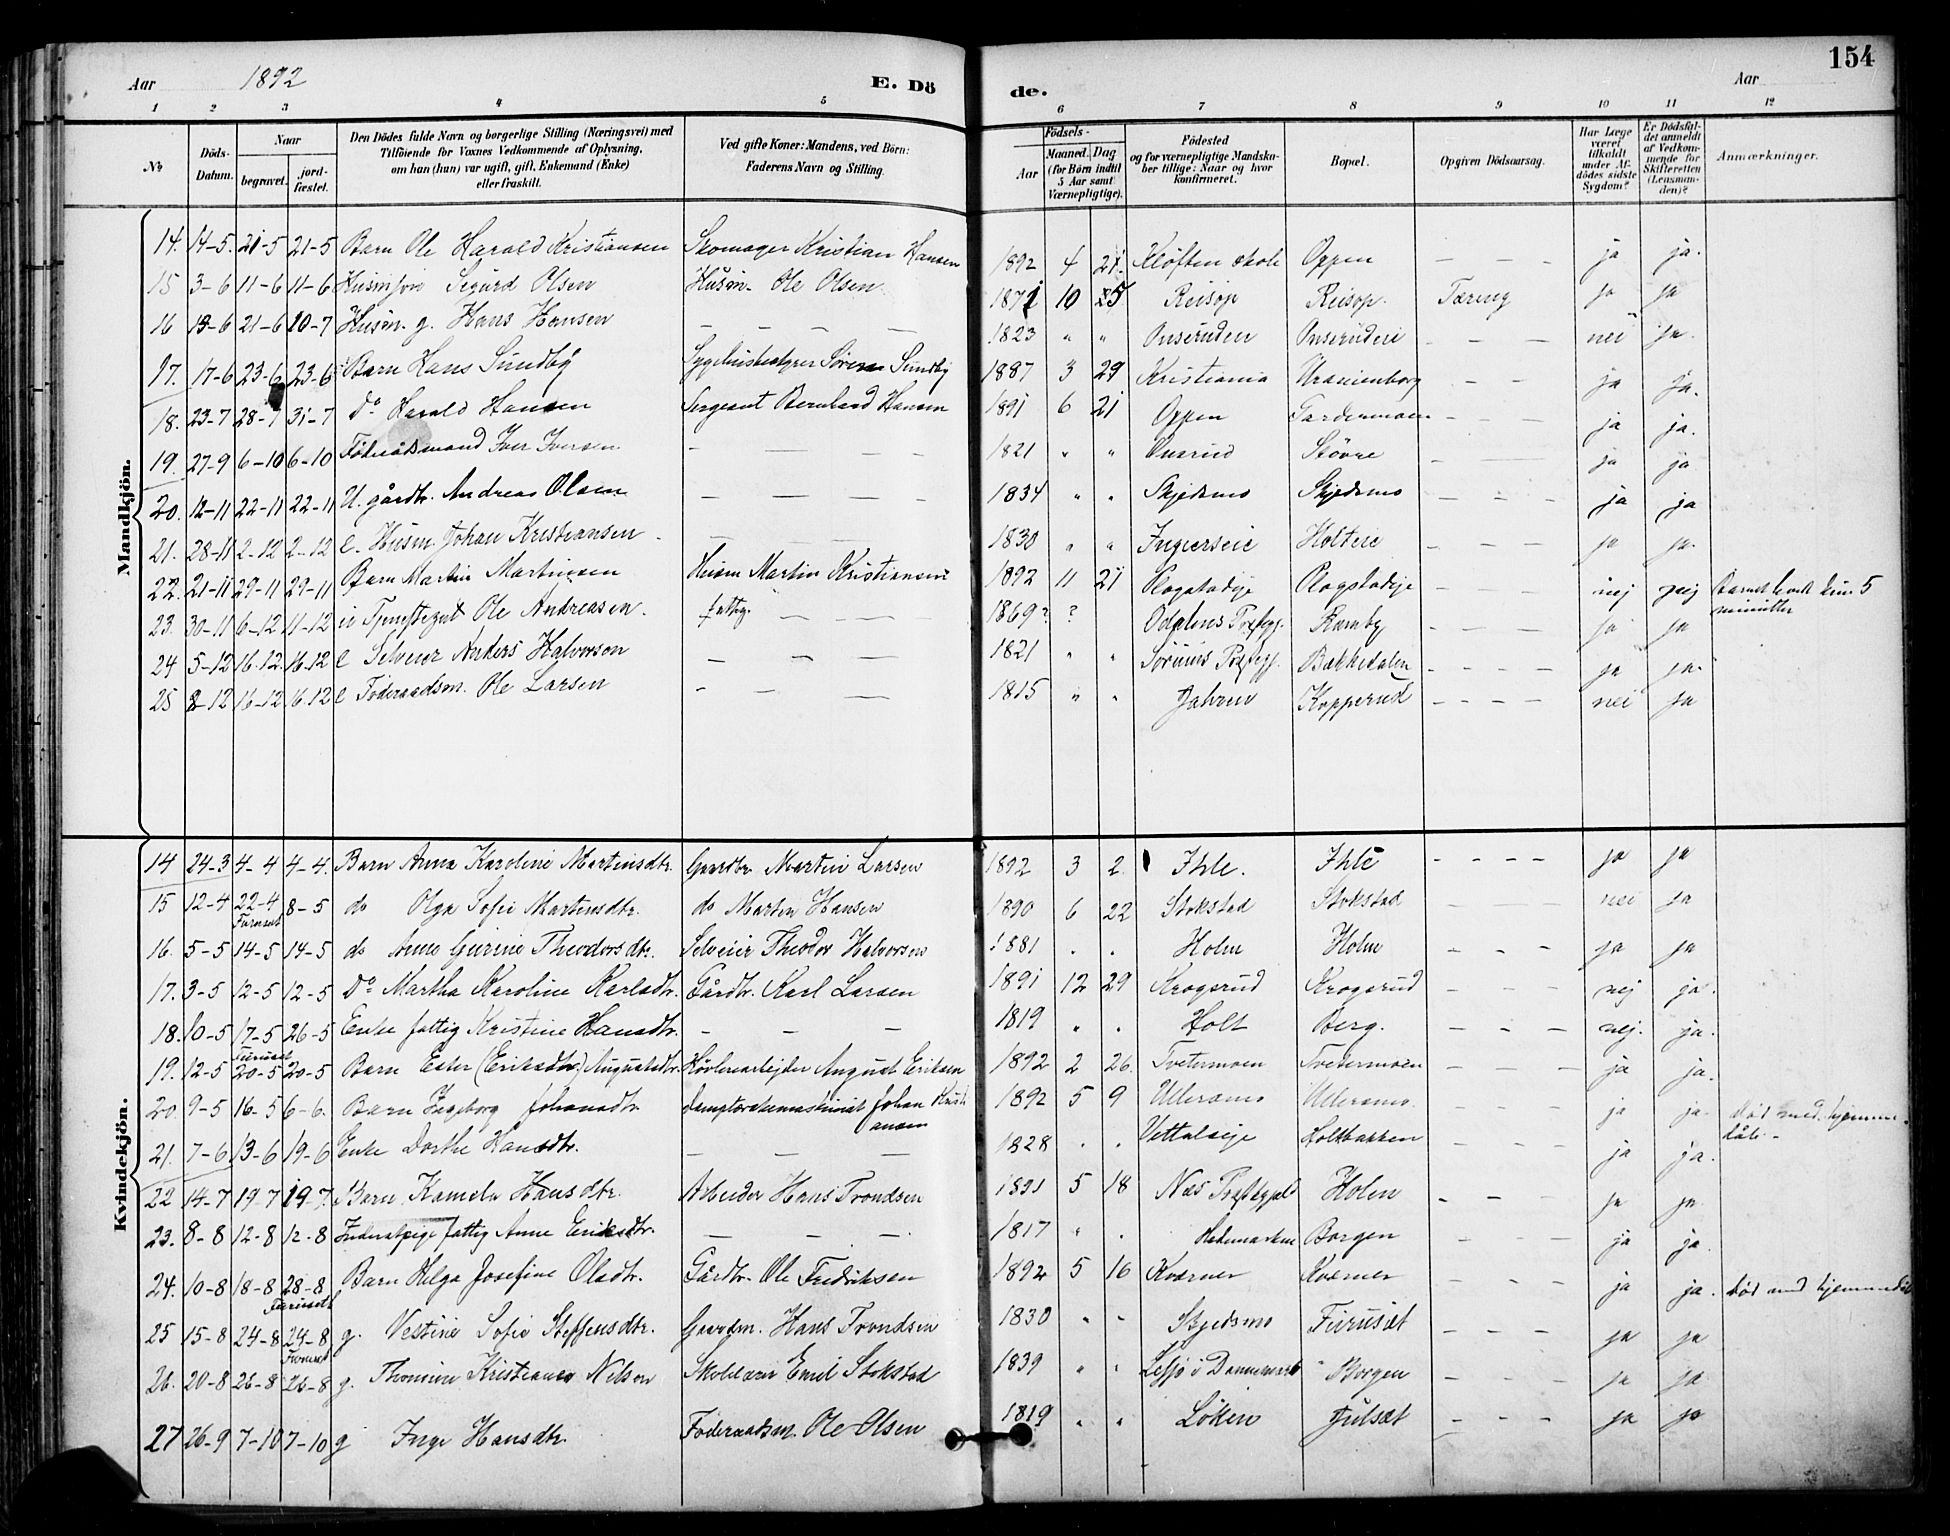 154
Aar 1892 E. Dö de. Aar
1 2 3 4 5 6 7 8 9 10 11 12
No Döds-Datum. Naar begravet. jord-fæstet. Den Dödes fulde Navn og borgerlige Stilling (Næringsvei) med Tilföiende for Voxnes Vedkommende af Oplysning, om han (hun) var ugift, gift, Enkemand (Enke) eller fraskilt. Ved gifte Koner: Mandens, ved Börn: Faderens Navn og Stilling. Födsels- Aar Maaned. Dag (for Börn indtil 5 Aar samt Værnepligtige). Födested og for værnepligtige Mandskaber tillige: Naar og hvor konfirmeret. Bopæl. Opgiven Dödsaarsag. Har Læge været tilkaldt under Afdödes sidste Sygdom? Er Dödsfaldet anmeldt af Vedkommende for Skifteretten (Lensmanden)? Anmærkninger.
Mandkjön.
14. 14-5. 21-5 21-5 Barn Ole Harald Kristiansen Skomager Kristian Hansen 1892 4 21. Kløften skole Oppen — — — ja ja.
15 3-6 11-6 11-6 Husmsøn Sigurd Olsen Husm. Ole Olsen 1871 10 25 Reisop Reisop. Tæring ja ja
16 13-6 21-6 10-7 Husm. g. Hans Hansen — — — — 1823 " " Onsruden Onsruden — — — nei ja.
17. 17-6 23-6 23-6 Barn Hans Sundby Sygehusbestyrer Sören Sundby 1887 3 29 Kristiania Uranienborg — — ja ja.
18. 23-7 28-7 31-7 Do Harald Hansen Sergeant Bernhard Hansen 1891 6 21 Oppen Gardermoen — — — ja ja.
19. 27-9 6-10 6-10 Föderådsmand Iver Iversen — — — — 1821 " " Støvne — — — ja ja
20. 12-11 22-11 22-11 U. gårdbr. Andreas Olsen — — — — 1834 " " Skjedsmo Skjedsmo — — — ja ja
21. 28-11 2-12 2-12 e. Husm. Johan Kristiansen — — — 1830 " " Holteie — — — ja ja.
22. 21-11 29-11 29-11 Barn Martin Martinsen Husm Martin Kristiansen 1892 11 21 Plogstadeje Plogstadeje — nej nej Barnet levede kun 5 minutter
23. 30-11 6-12 11-12 Tjenstegut Ole Andreasen. fattig. — — 1869? ? Odalens Præstegj. Ramby — — — ja ja
24 5-12 16.12. 16.12 e Selveier Anders Halvorson — — — 1821 " " Sørums Præstegj. Bakkedalen — — — — ja ja.
25 8-12 16-12 16.12 e Föderaadsm. Ole Larsen — — — 1815 " " Jahren Kopperud — — — — nei Ja
Kvindekjön.
14 24-3 4-4 4-4. Barn Anna Karoline Martinsdtr. Gaardbr Martin Larsen 1892 3 2. Ihle. Ihle — — — — ja ja
15 12-4 22-4 8-5 do Olga Sofie Martinsdtr. do Martin Hansen 1890 6 22 Stokstad Stokstad — — — — nei ja
Furuset
16. 5-5 14-5 14-5 do Anne Gurine Theodorsdtr. Selveier Theodor Halvorsen 1881 . . Holm Holm — — — ja ja
17. 3-5 12-5 12-5 Do Martha Karoline Karlsdtr. Gårdbr. Karl Larsen 1891 12 29 Krogsrud Krogsrud — — — nej ja.
18. 10-5 17-5 26-5 Enke fattig Kristine Hansdtr. — — — 1819 " . Holt Berg. — — — nej. ja.
Furuset
19. 12-5 20-5 20-5 Barn Ester (Eriksdtr.) Augustsdtr. Høvleriarbejder August Eriksen 1892 2 26. Tvetermoen Tvetermoen — — — — ja ja.
20. 9-5 16-5 6-6. Barn Ingeborg Johansdtr. Johan Kristiansen 1892 5 9 Ulleramo Ulleramo. — — — ja ja. død med hjemmedåb. —
21. 7-6 13-6 19-6 Enke Dorthe Hansdtr. — — — 1828 . . Holtbakken — — — ja ja.
22 14-7 19-7 19-7. Barn Kamela Hansdtr. Arbeider Hans Trondsen 1891 5 18 Næs Præstegjeld Holen — — — ja ja.
23. 8-8 12-8 12-8 fattig Anne Eriksdtr. — — — 1817 " . Hedemarken Borgen — — — ja ja.
24. 10-8 18-8 28-8 Barn Helga Josefine Olsdtr. Gårdbr. Ole Fredriksen 1892 5 16 Kværner Kværner — — — ja ja. død med hjemmedåb
Furuset
25 15-8 24-8 24-8 g. Vestine Sofie Steffensdtr. Gaardm. Hans Trondsen 1830 " " Skjedsmo Furuset — — — ja ja
Furuset
26. 20-8 26-8 26-8 g. Thomine Kristiane Nilson Skolelærer Emil Stokstad 1839 " " Danmark Borgen — — — ja ja
27 26-9 7-10 7-10 g Inge Hansdtr. Föderaadsm. Ole Olsen 1819 " " Løken Julsæt — — — ja ja